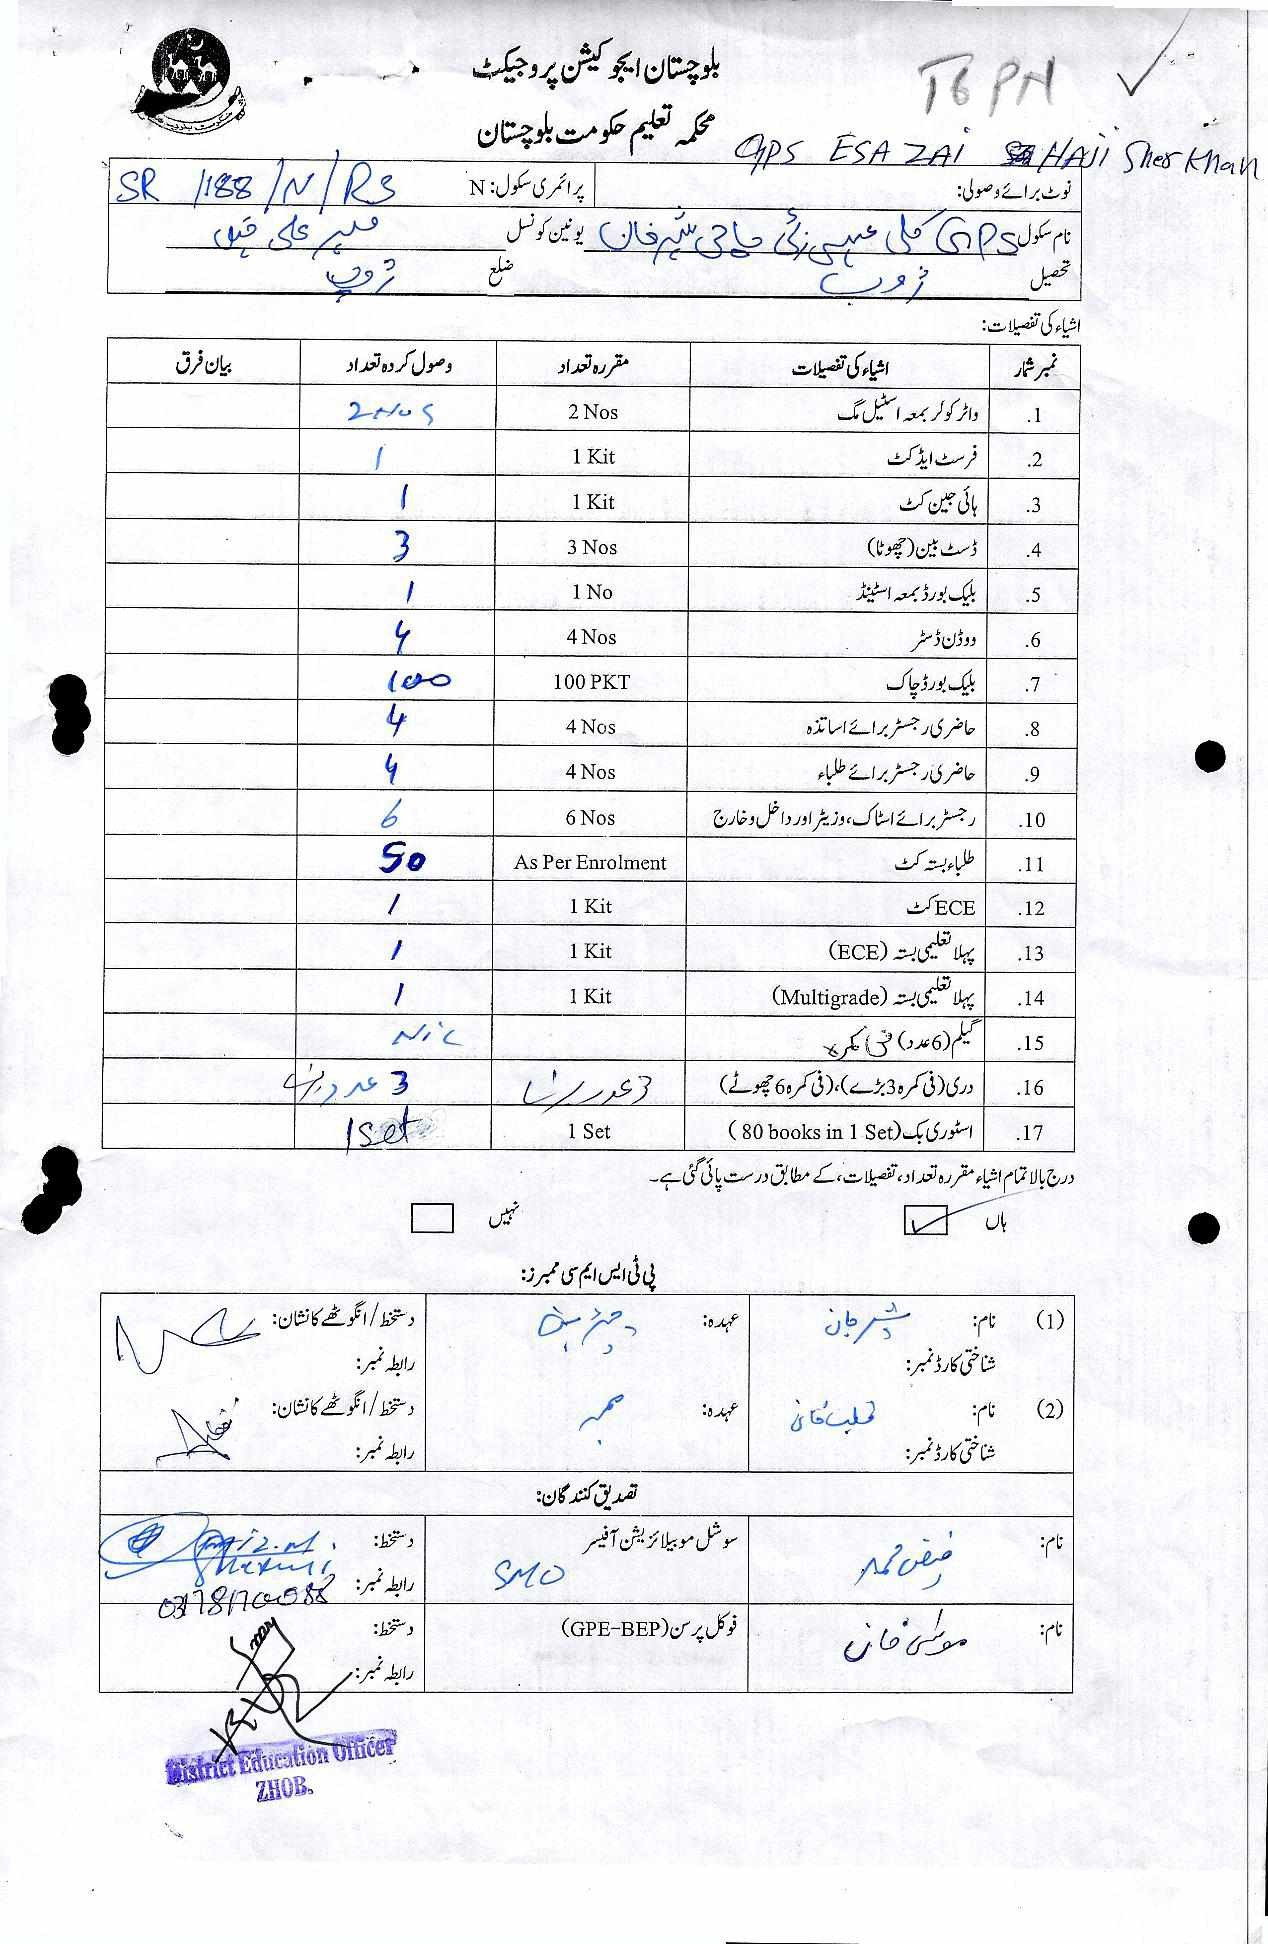 بلوچستان ایجوکیشن پروجیکٹ
T6PN
محکمہ تعلیم حکومت بلوچستان
GPS ESA ZAI HAJI Sher Khan
نوٹ برائے وصولی: پرائمری سکول: N SR /188/N/RS
نام سکول GPS کلی عیسیٰ زئی حاجی شیر خان یونین کونسل میر علی خیل
تحصیل ژوب ضلع ژوب
اشیاء کی تفصیلات:
نمبر شمار اشیاء کی تفصیلات مقررہ تعداد وصول کردہ تعداد بیان فرق
1. واٹر کولر بمعہ اسٹیل مگ 2 Nos 2 Nos
2. فرسٹ ایڈ کٹ 1 Kit 1
3. ہائی جین کٹ 1 Kit 1
4. ڈسٹ بین (چھوٹا) 3 Nos 3
5. بلیک بورڈ بمعہ اسٹینڈ 1 No 1
6. ووڈن ڈسٹر 4 Nos 4
7. بلیک بورڈ چاک 100 PKT 100
8. حاضری رجسٹر برائے اساتذہ 4 Nos 4
9. حاضری رجسٹر برائے طلباء 4 Nos 4
10. رجسٹر برائے اسٹاک، وزیٹر اور داخل و خارج 6 Nos 6
11. طلباء بستہ کٹ As Per Enrolment 50
12. ECE کٹ 1 Kit 1
13. پہلا تعلیمی بستہ (ECE) 1 Kit 1
14. پہلا تعلیمی بستہ (Multigrade) 1 Kit 1
15. گیلم (6 عدد) فی کمرہ Nil
16. دری (فی کمرہ 3 بڑے)، (فی کمرہ 6 چھوٹے) 3 عدد 3 عدد
17. اسٹوری بک (80 books in 1 Set) 1 Set 1 set
درج بالا تمام اشیاء مقررہ تعداد، تفصیلات، کے مطابق درست پائی گئی ہے۔
ہاں نہیں
پی ٹی ایس ایم سی ممبرز:
(1) نام: شیر جان عہدہ: چیئرمین دستخط / انگوٹھے کا نشان:
شناختی کارڈ نمبر: رابطہ نمبر:
(2) نام: عہدہ: ممبر دستخط / انگوٹھے کا نشان:
شناختی کارڈ نمبر: رابطہ نمبر:
تصدیق کنندگان:
نام: فیض محمد سوشل موبیلائزیشن آفیسر SMO دستخط:
رابطہ نمبر: 03178170088
نام: موسیٰ خان فوکل پرسن (GPE-BEP) دستخط:
رابطہ نمبر:
District Education Officer
ZHOB.